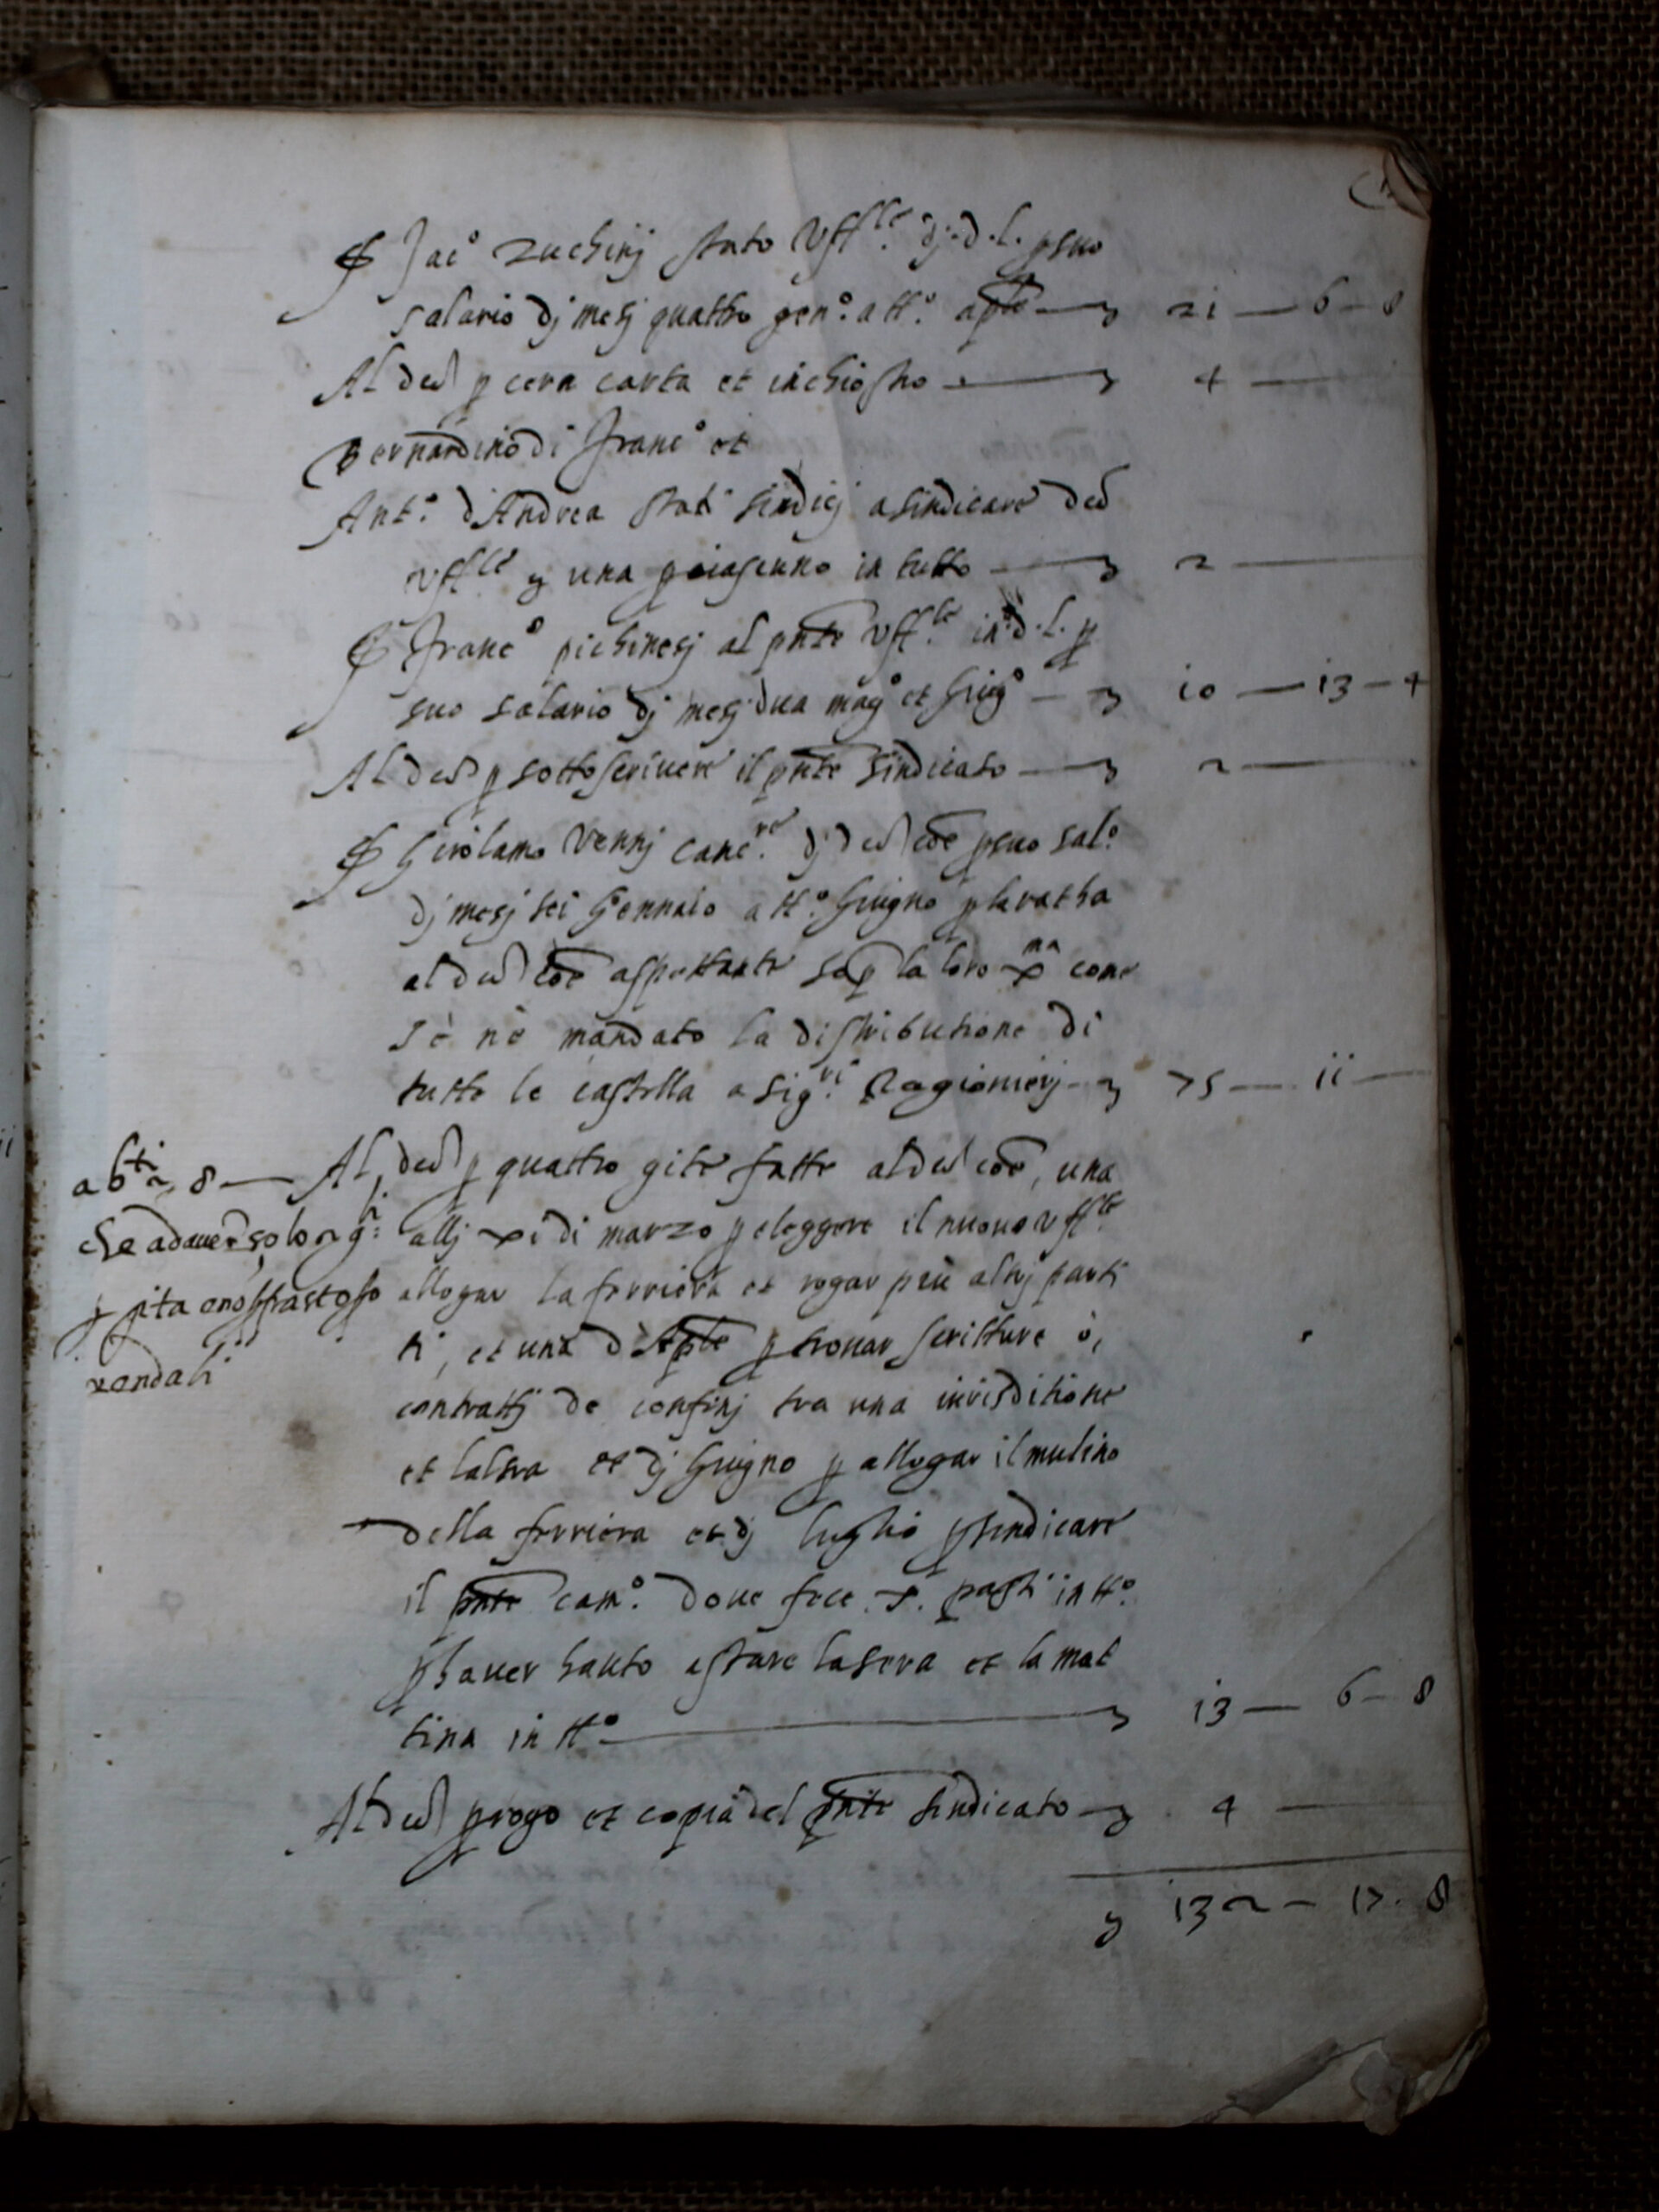 S Jac° Zuchinj stato Uff.le dj.d.l. p suo
salario dj mesj quattro gen.° a tt.° aple — 21 — 6 — 8
Al ded p cera carta et inchiostro — 4 —
Bernardino di Franc° et
Ant.° d'Andrea stati sindicj a sindicare ded
uff.le una p ciascuno in tutto — 2 —
S Franc° pichinesj al pnte Uff.le in d.l. p
suo salario dj mesj dua mag° et giug° — 10 — 13 — 4
Al ded p sottoscrivere il pnte sindicato — 2 —
S Girolamo Vennj canc.re dj ded coe p suo sal.°
dj mesj sei Gennaio a tt.° Giugno p la ratha
al ded coe aspettante sop la loro xma come
s'è nè mandato la distributione di
tutte le castella a sig.ri Ragionierj — 75 — 11 —
Al ded p quattro gite fatte al ded coe, una
allj xi di marzo p eleggere il nuovo uff.le
allogar la ferriera et rogar più altrj parti
ti, et una d'Aple p trovar scritture ò,
contrattj de confinj tra una iurisditione
et laltra et dj Giugno p allogar il mulino
della ferriera et dj luglio p sindicare
il pnte cam.° dove fece .x. pasti in tt.°
p haver hauto a stare la sera et la mat
tina in tt° — 13 — 6 — 8
Al ded p rogo et copia del pnte sindicato — 4 —
132 — 17. 8
ab.ti 2 8 —
che ad aver solo 2 g.ti
p gita